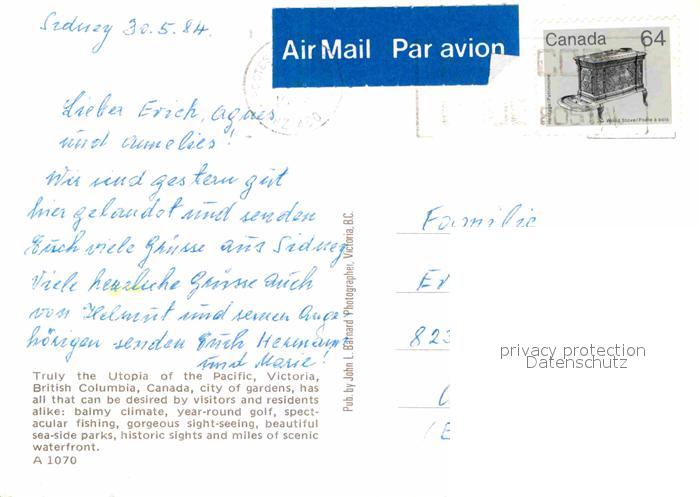 Sidney 30.5.84.
Air Mail Par avion
Canada 64
Heritage Patrimoine
Wood Stove/Poêle à bois
Lieber Erich, Agnes
und Annelies!
Wir sind gestern gut
hier gelandet und senden
Euch viele Grüsse aus Sidney
Viele herzliche Grüsse auch
von Helmut und seinen Ange-
hörigen senden Euch Hermann
und Marie!
Truly the Utopia of the Pacific, Victoria,
British Columbia, Canada, city of gardens, has
all that can be desired by visitors and residents
alike: balmy climate, year-round golf, spect-
acular fishing, gorgeous sight-seeing, beautiful
sea-side parks, historic sights and miles of scenic
waterfront.
A 1070
Pub. by John L. Barnard Photographer, Victoria, B.C.
Familie
Er
823
privacy protection
Datenschutz